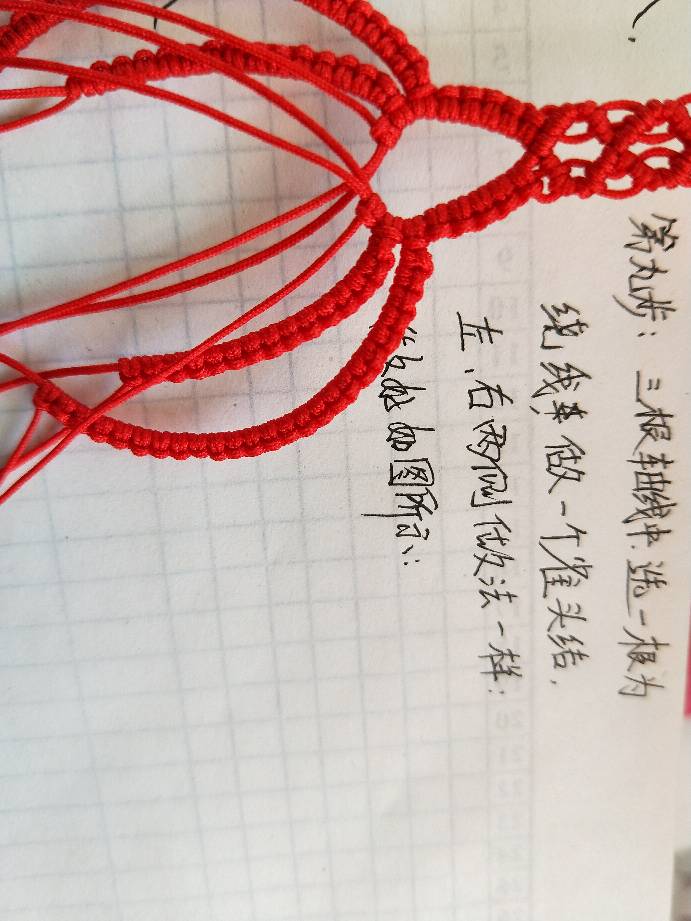 第九步：三根轴线中.选一根为
绕线来做一个雀头结.
左、右两侧做法一样：
如图所示：